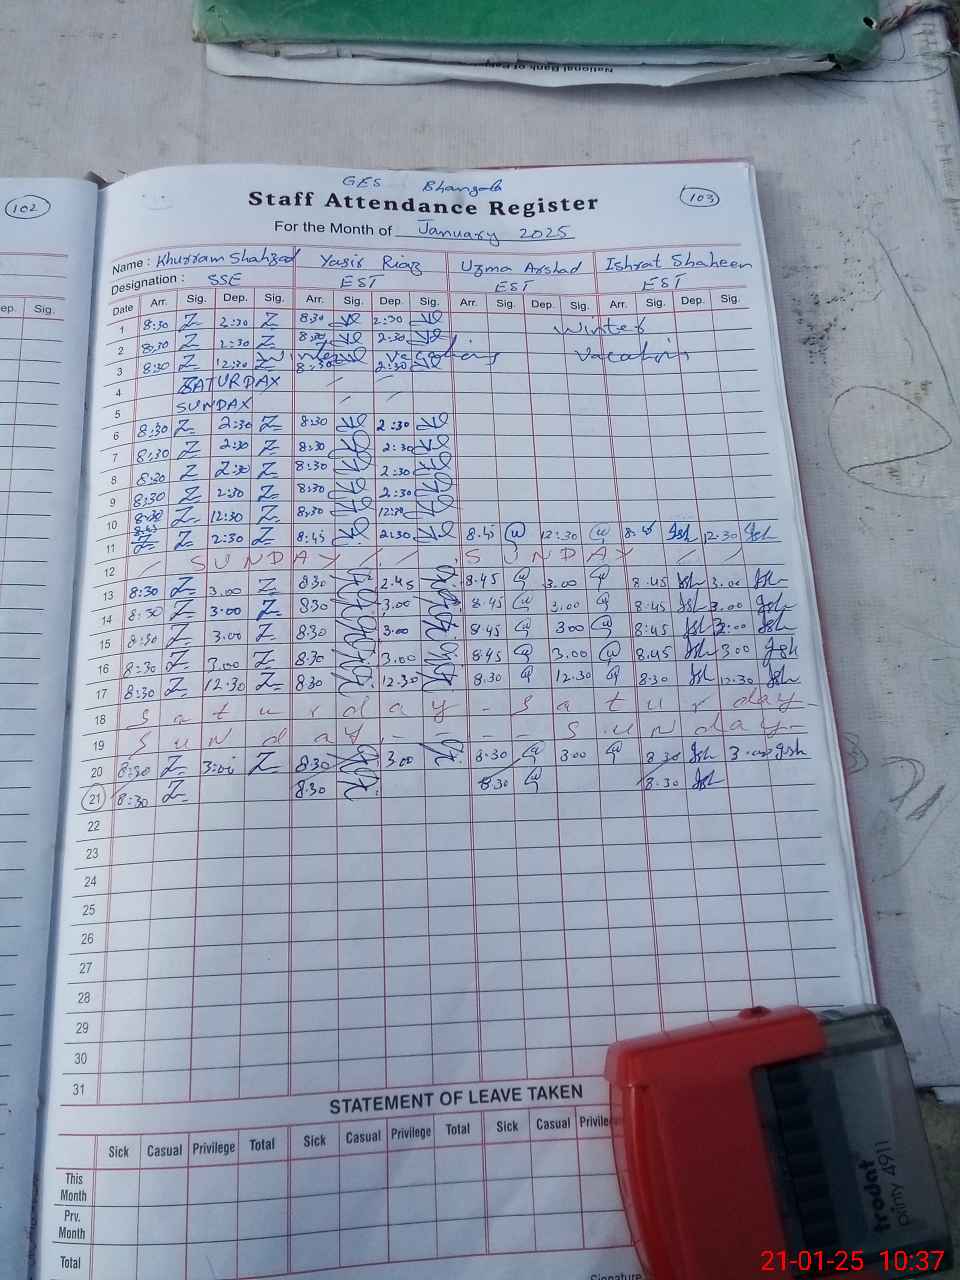 National Bank of
GES Bhangala
102
Staff Attendance Register
103
For the Month of January 2025
Name : Khurram Shahzad Yasir Riaz Uzma Arshad Ishrat Shaheen
Designation : SSE EST EST EST
ep. Sig. Date Arr. Sig. Dep. Sig. Arr. Sig. Dep. Sig. Arr. Sig. Dep. Sig. Arr. Sig. Dep. Sig.
1 8:30 Z 2:30 Z 8:30 2:30 Winter
2 8:30 Z 2:30 Z 8:30 2:30
3 8:30 Z 12:30 Z Winter Vacations 8:30 2:30 Vacation
4 SATURDAY
5 SUNDAY
6 8:30 Z 2:30 Z 8:30 2:30
7 8:30 Z 2:30 Z 8:30 2:30
8 8:30 Z 2:30 Z 8:30 2:30
9 8:30 Z 2:30 Z 8:30 2:30
10 8:30 Z 12:30 Z 8:30 12:30
11 8:45 Z Z 2:30 Z 8:45 2:30 8.45 12:30 8.45 Ish 12.30 Ish
12 SUNDAY SUNDAY
13 8:30 Z 3.00 Z 8:30 2.45 8.45 3.00 8.45 Ish 3.00 Ish
14 8:30 Z 3.00 Z 8:30 3.00 8.45 3.00 8:45 Ish 3.00 Ish
15 8:30 Z 3.00 Z 8:30 3.00 8.45 3 00 8:45 Ish 3:00 Ish
16 8:30 Z 3.00 Z 8:30 3.00 8.45 3.00 8.45 Ish 3 00 Ish
17 8:30 Z 12:30 Z 8:30 12.30 8.30 12.30 8:30 Ish 12.30 Ish
18 Saturday - Saturday -
19 Sunday - - - - Sunday -
20 8:30 Z 3:00 Z 8:30 3.00 8.30 3 00 8 30 Ish 3.00 Ish
21 8:30 Z 8:30 8.30 8.30 Ish
22
23
24
25
26
27
28
29
30
31
STATEMENT OF LEAVE TAKEN
Sick Casual Privilege Total Sick Casual Privilege Total Sick Casual Privile
This Month
Prv. Month
Total
Signature
trodat
printy 4911
21-01-25 10:37